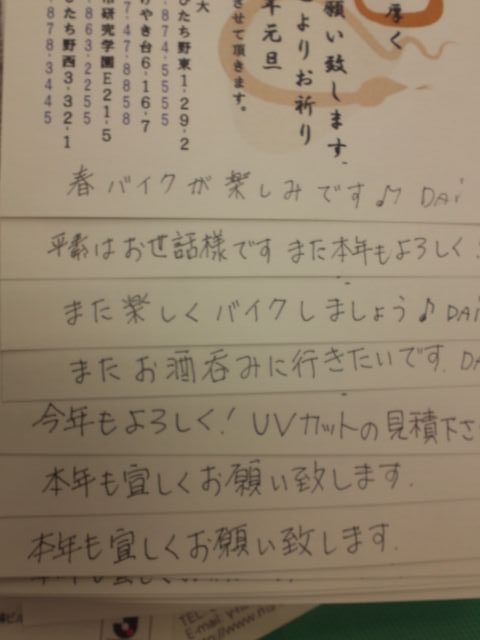 厚く
願い致します。
よりお祈り
年元旦
させて頂きます。
大
ひたち野東1-29-2
874-5555
やき台6-16-7
47-8858
研究学園E21-5
863-2255
たち野西3-32-1
878-3445
春バイクが楽しみです♪ DAi
平素はお世話様です また本年もよろしく
また楽しくバイクしましょう♪ DAi
またお酒呑みに行きたいです. DA
今年もよろしく! UVカットの見積下さ
本年も宜しくお願い致します.
本年も宜しくお願い致します.
TEL
E-mail
http://www.